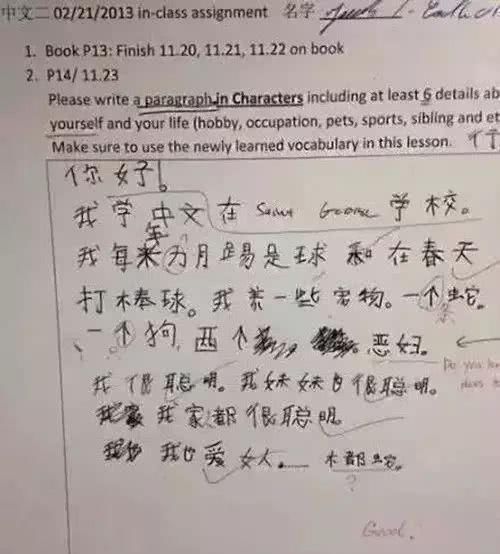 中文二 02/21/2013 in-class assignment 名字
1. Book P13: Finish 11.20, 11.21, 11.22 on book
2. P14/ 11.23
Please write a paragraph in Characters including at least 6 details ab
yourself and your life (hobby, occupation, pets, sports, sibling and et
Make sure to use the newly learned vocabulary in this lesson.
你好!
我学中文在 Saint George 学校。
年
我每 力月踢是球和在春天
打棒球。我养一些宠物。一个蛇
条
、一个狗，两个 恶妇。
Do you
does
我很聪明。我妹妹也很聪明。
我家都很聪明。
我也爱女人。 木都蛇。
?
Good.